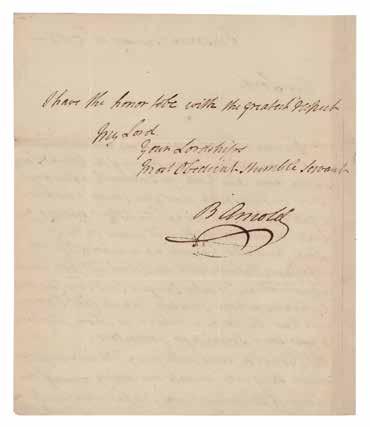 I have the honor to be with the greatest respect
My Lord
Your Lordships
most Obedient Humble Servant
B Arnold